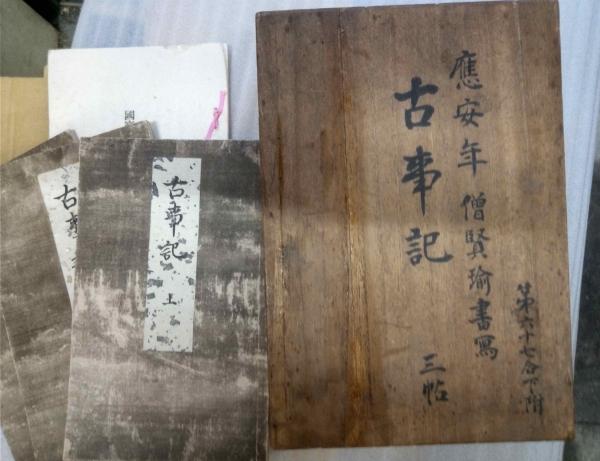 應安年 僧賢瑜書寫
古事記
三帖
第六十七合下附
古事記 上
古事
國